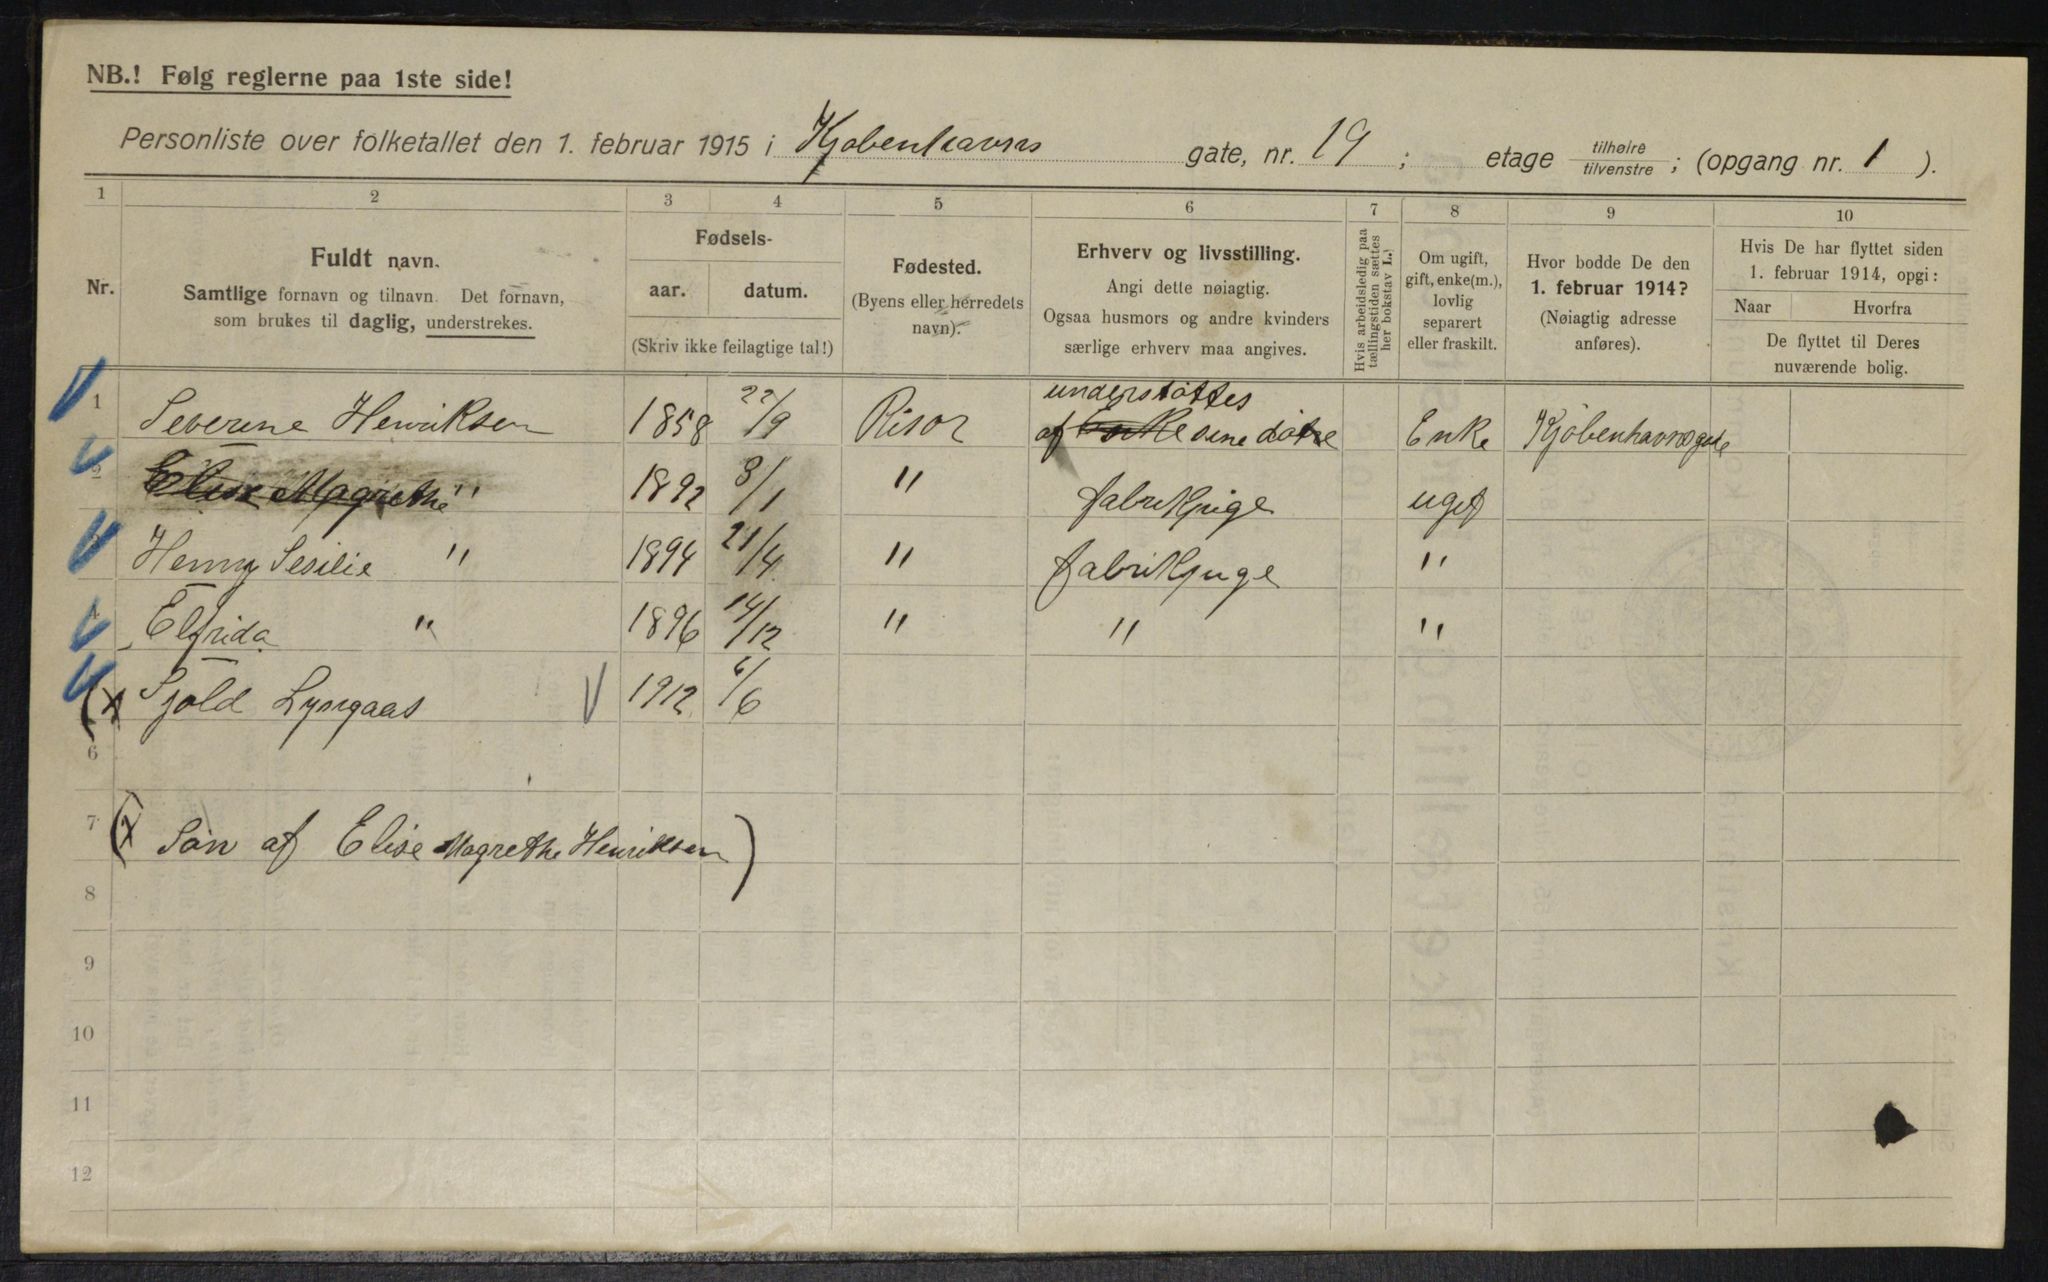 NB.! Følg reglerne paa 1ste side!
Personliste over folketallet den 1. februar 1915 i Kjøbenhavns gate, nr. 19 ; etage tilhøire tilvenstre ; (opgang nr. 1 ).
1 2 3 4 5 6 7 8 9 10
Nr.
Fuldt navn.
Samtlige fornavn og tilnavn. Det fornavn,
som brukes til daglig, understrekes.
Fødsels-
aar. datum.
(Skriv ikke feilagtige tal!)
Fødested.
(Byens eller herredets
navn).
Erhverv og livsstilling.
Angi dette nøiagtig.
Ogsaa husmors og andre kvinders
særlige erhverv maa angives.
Hvis arbeidsledig paa
tællingstiden sættes
her bokstav L.!
Om ugift,
gift, enke(m.),
lovlig
separert
eller fraskilt.
Hvor bodde De den
1. februar 1914?
(Nøiagtig adresse
anføres).
Hvis De har flyttet siden
1. februar 1914, opgi:
Naar Hvorfra
De flyttet til Deres
nuværende bolig.
understøttes
1 Severine Henriksen 1858 22/9 Risør af Enke sine døtre Enke Kjøbenhavnsgate
2 Elise Magrethe " 1892 8/1 " fabrikpige ugif
3 Henny Sesilie " 1894 21/4 " fabrikpige "
4 Elfrida " 1896 14/12 " " "
(x Sjold Lyngaas 1912 6/6
6
7 (x Søn af Elise Magrethe Henriksen)
8
9
10
11
12